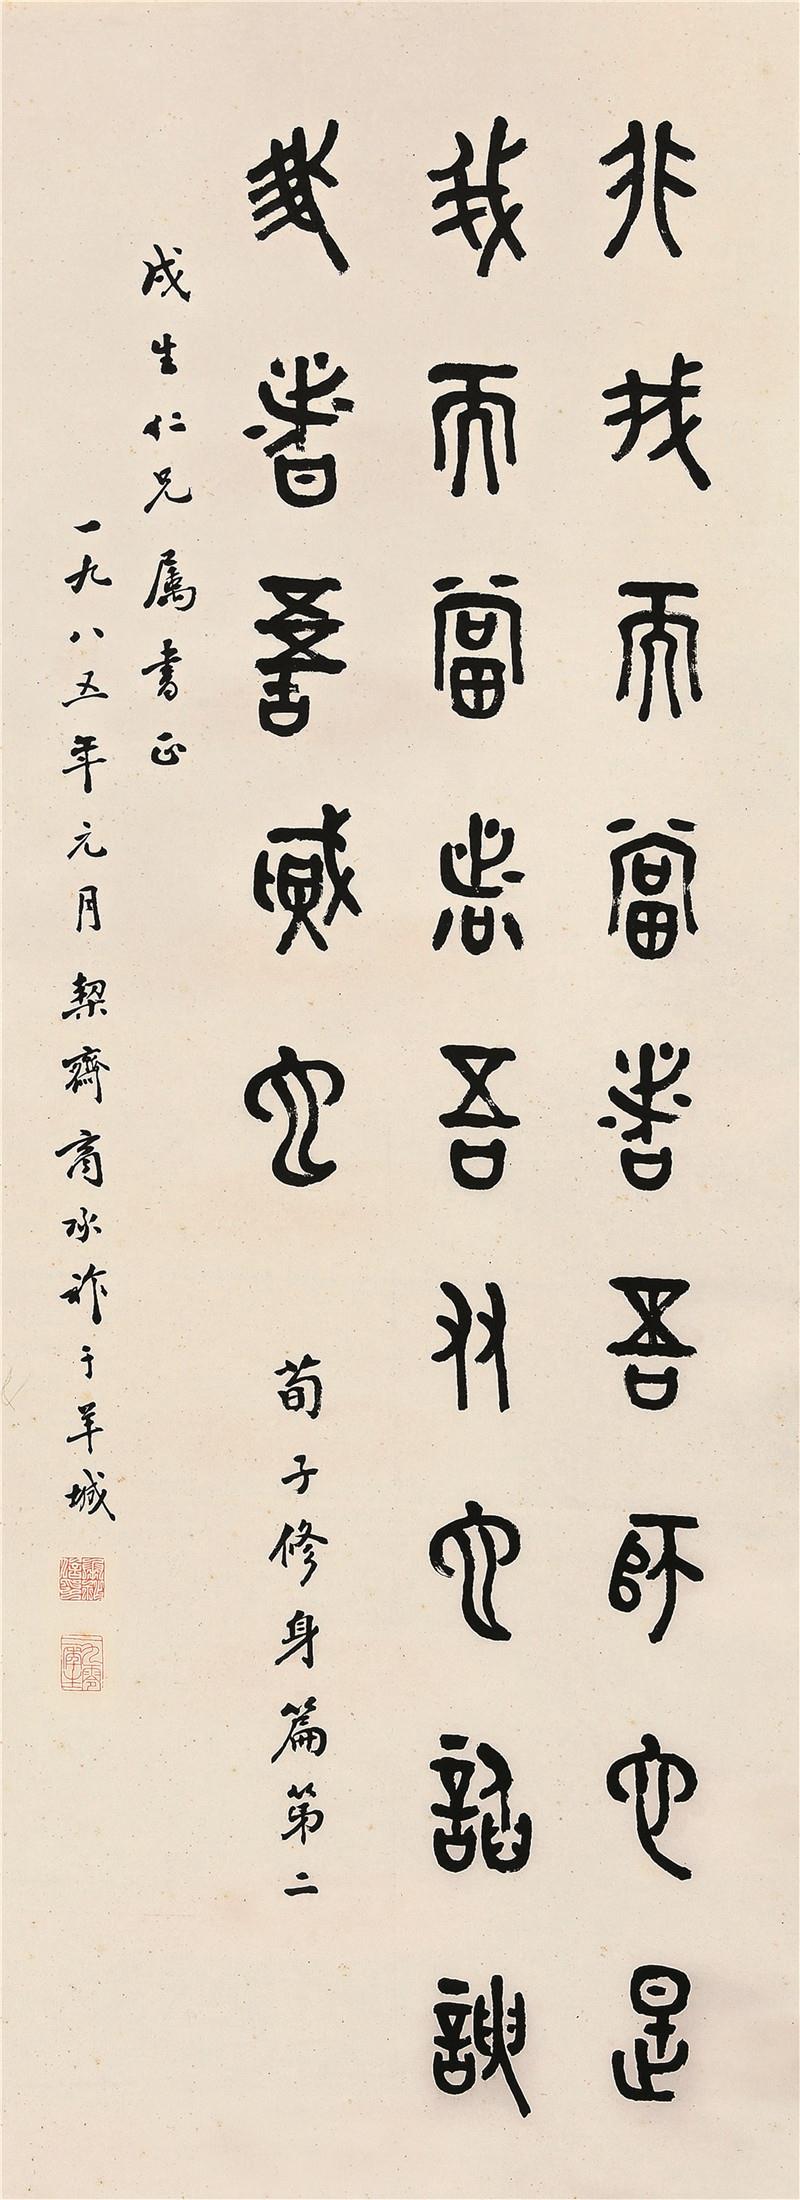 非我而當者吾師也是
我而當者吾友也諂諛
我者吾賊也 荀子修身篇第二
成生仁兄属書正
一九八五年元月栔齋商承祚于羊城